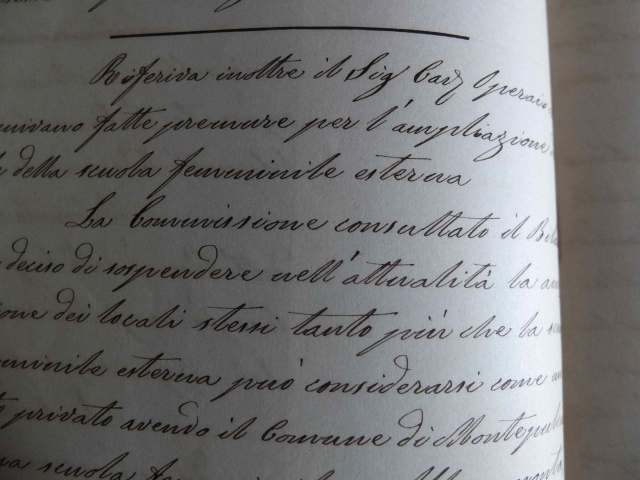 Riferiva inoltre il Sigʳ Cavʳ Operaio
venivano fatte premure per l'ampliazione
della scuola femminile esterna
La Commissione consultato il
deciso di sospendere nell'attualità la
ione dei locali stessi tanto più che la
minile esterna può considerarsi come
privato avendo il Comune di Montepul
scuola